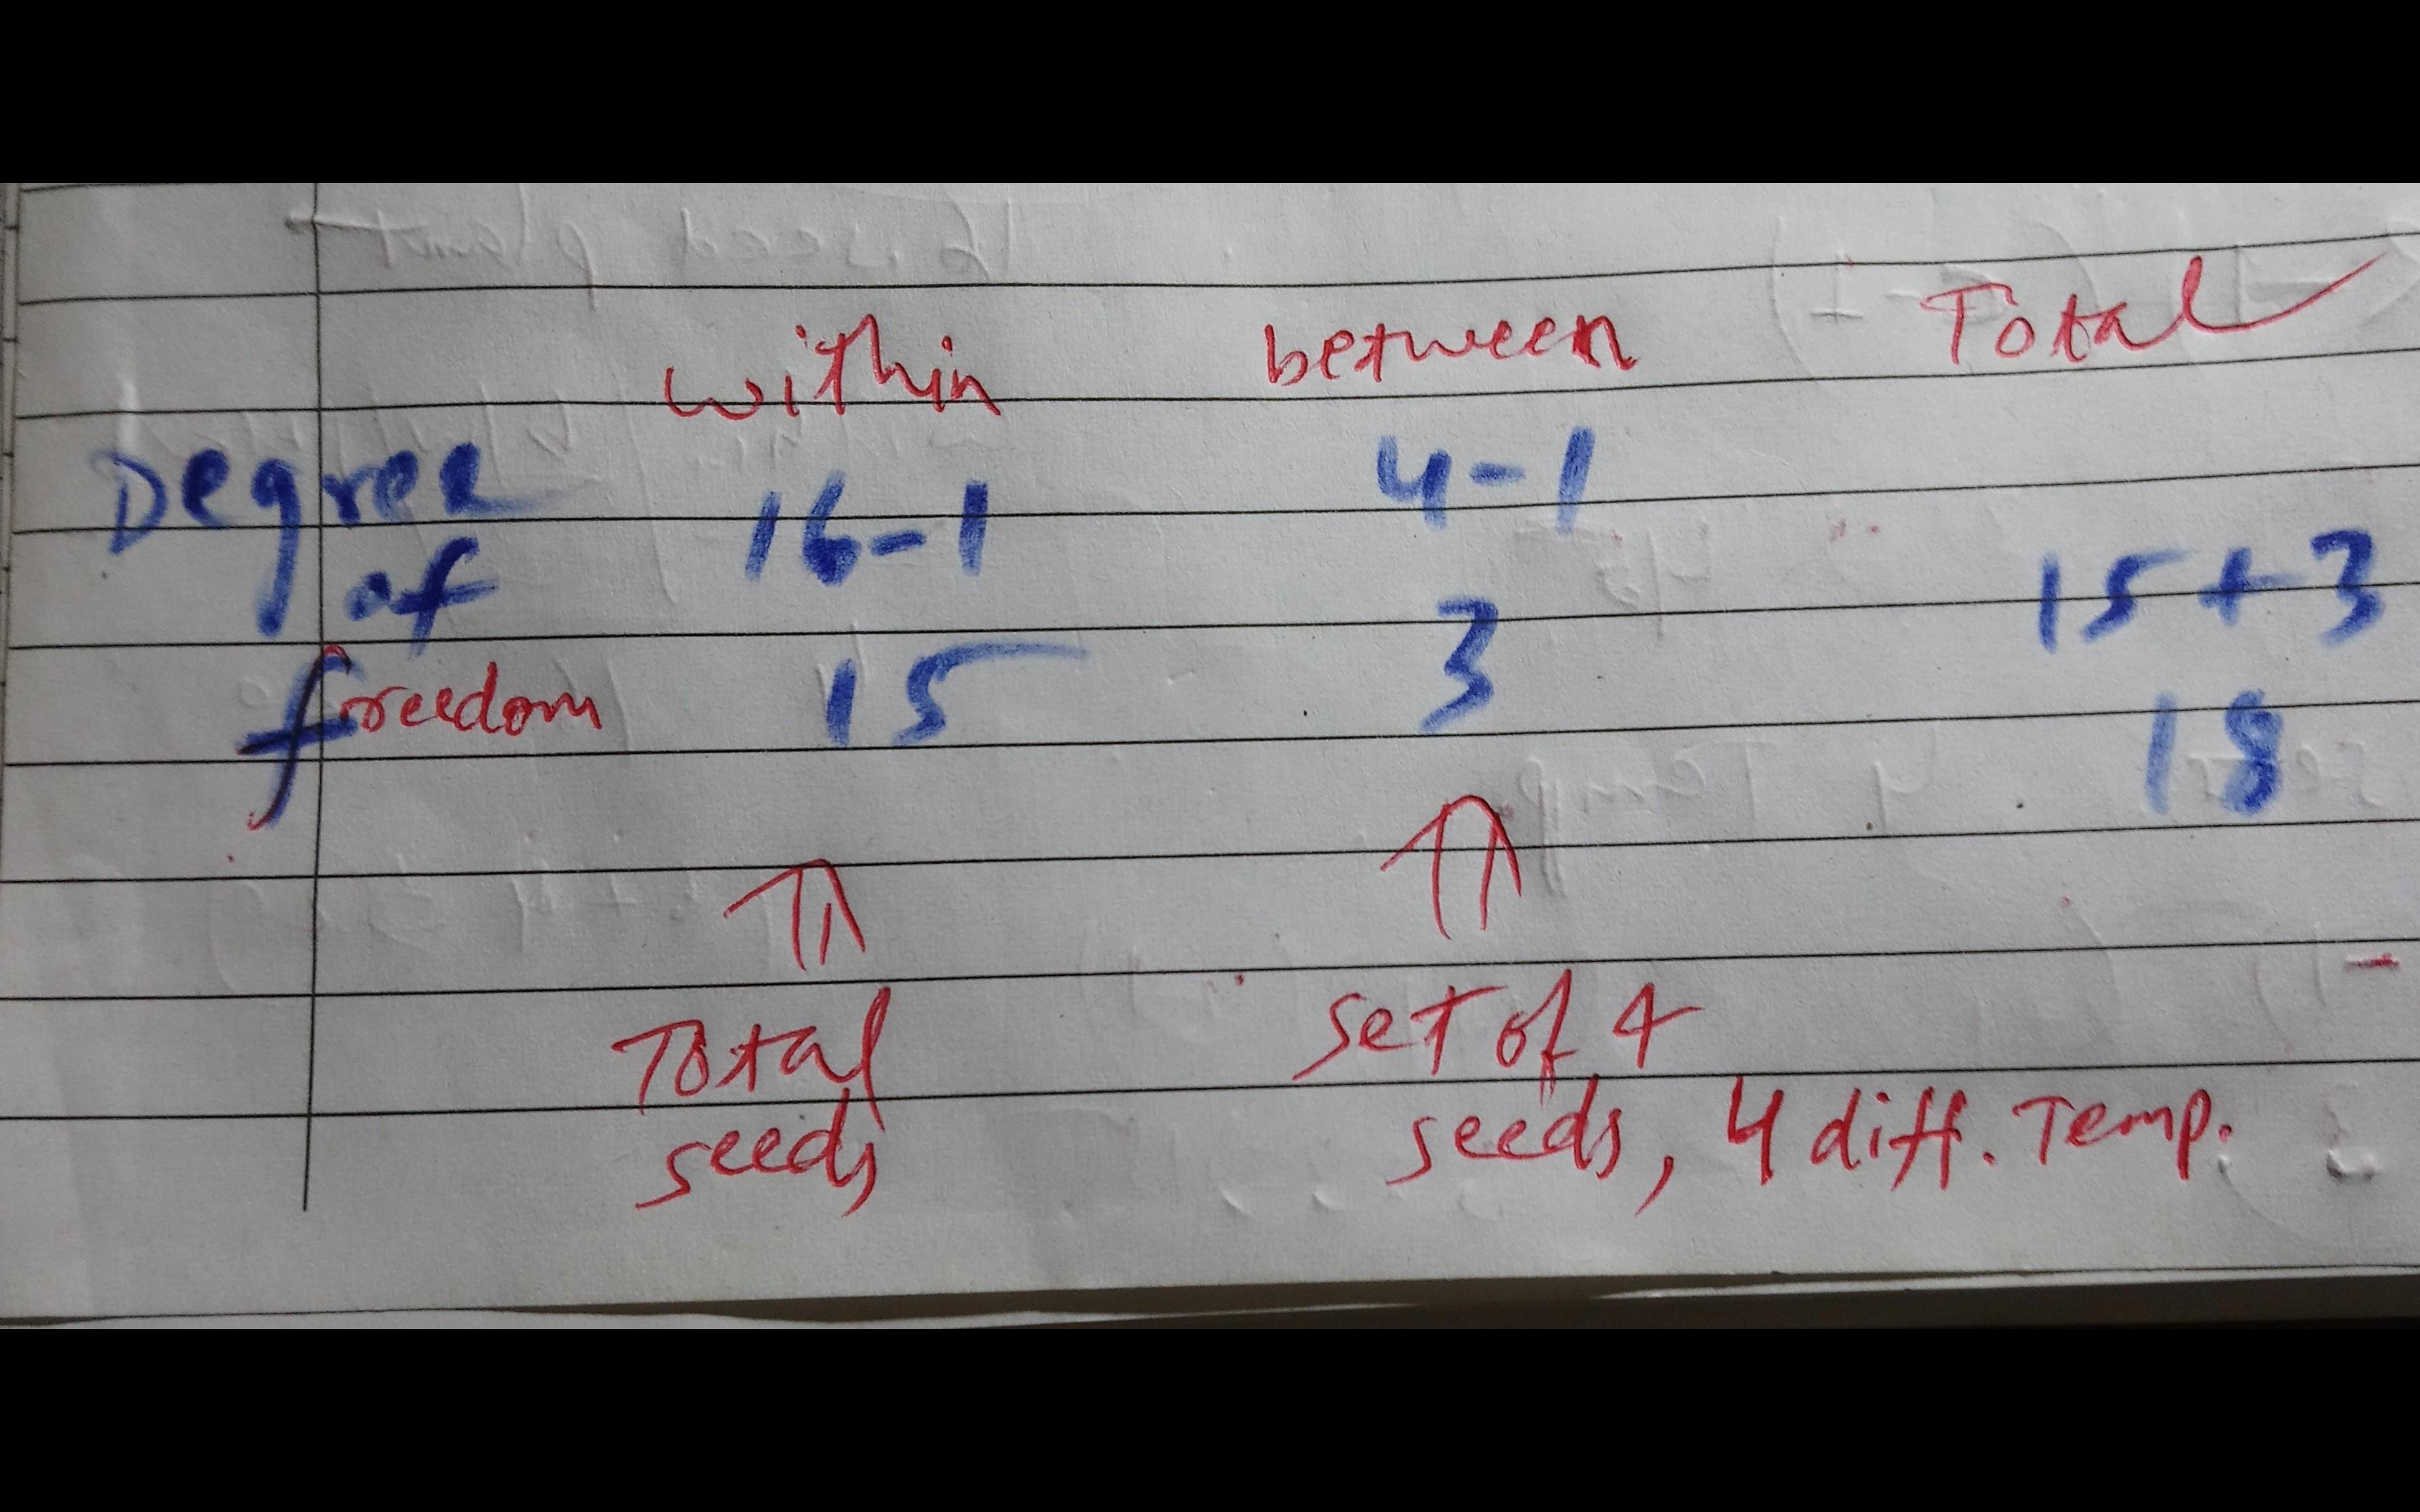 within between Total
Degree 16-1 4-1
of 15+3
freedom 15 3 18
Total seeds
set of 4
seeds, 4 diff. Temp.